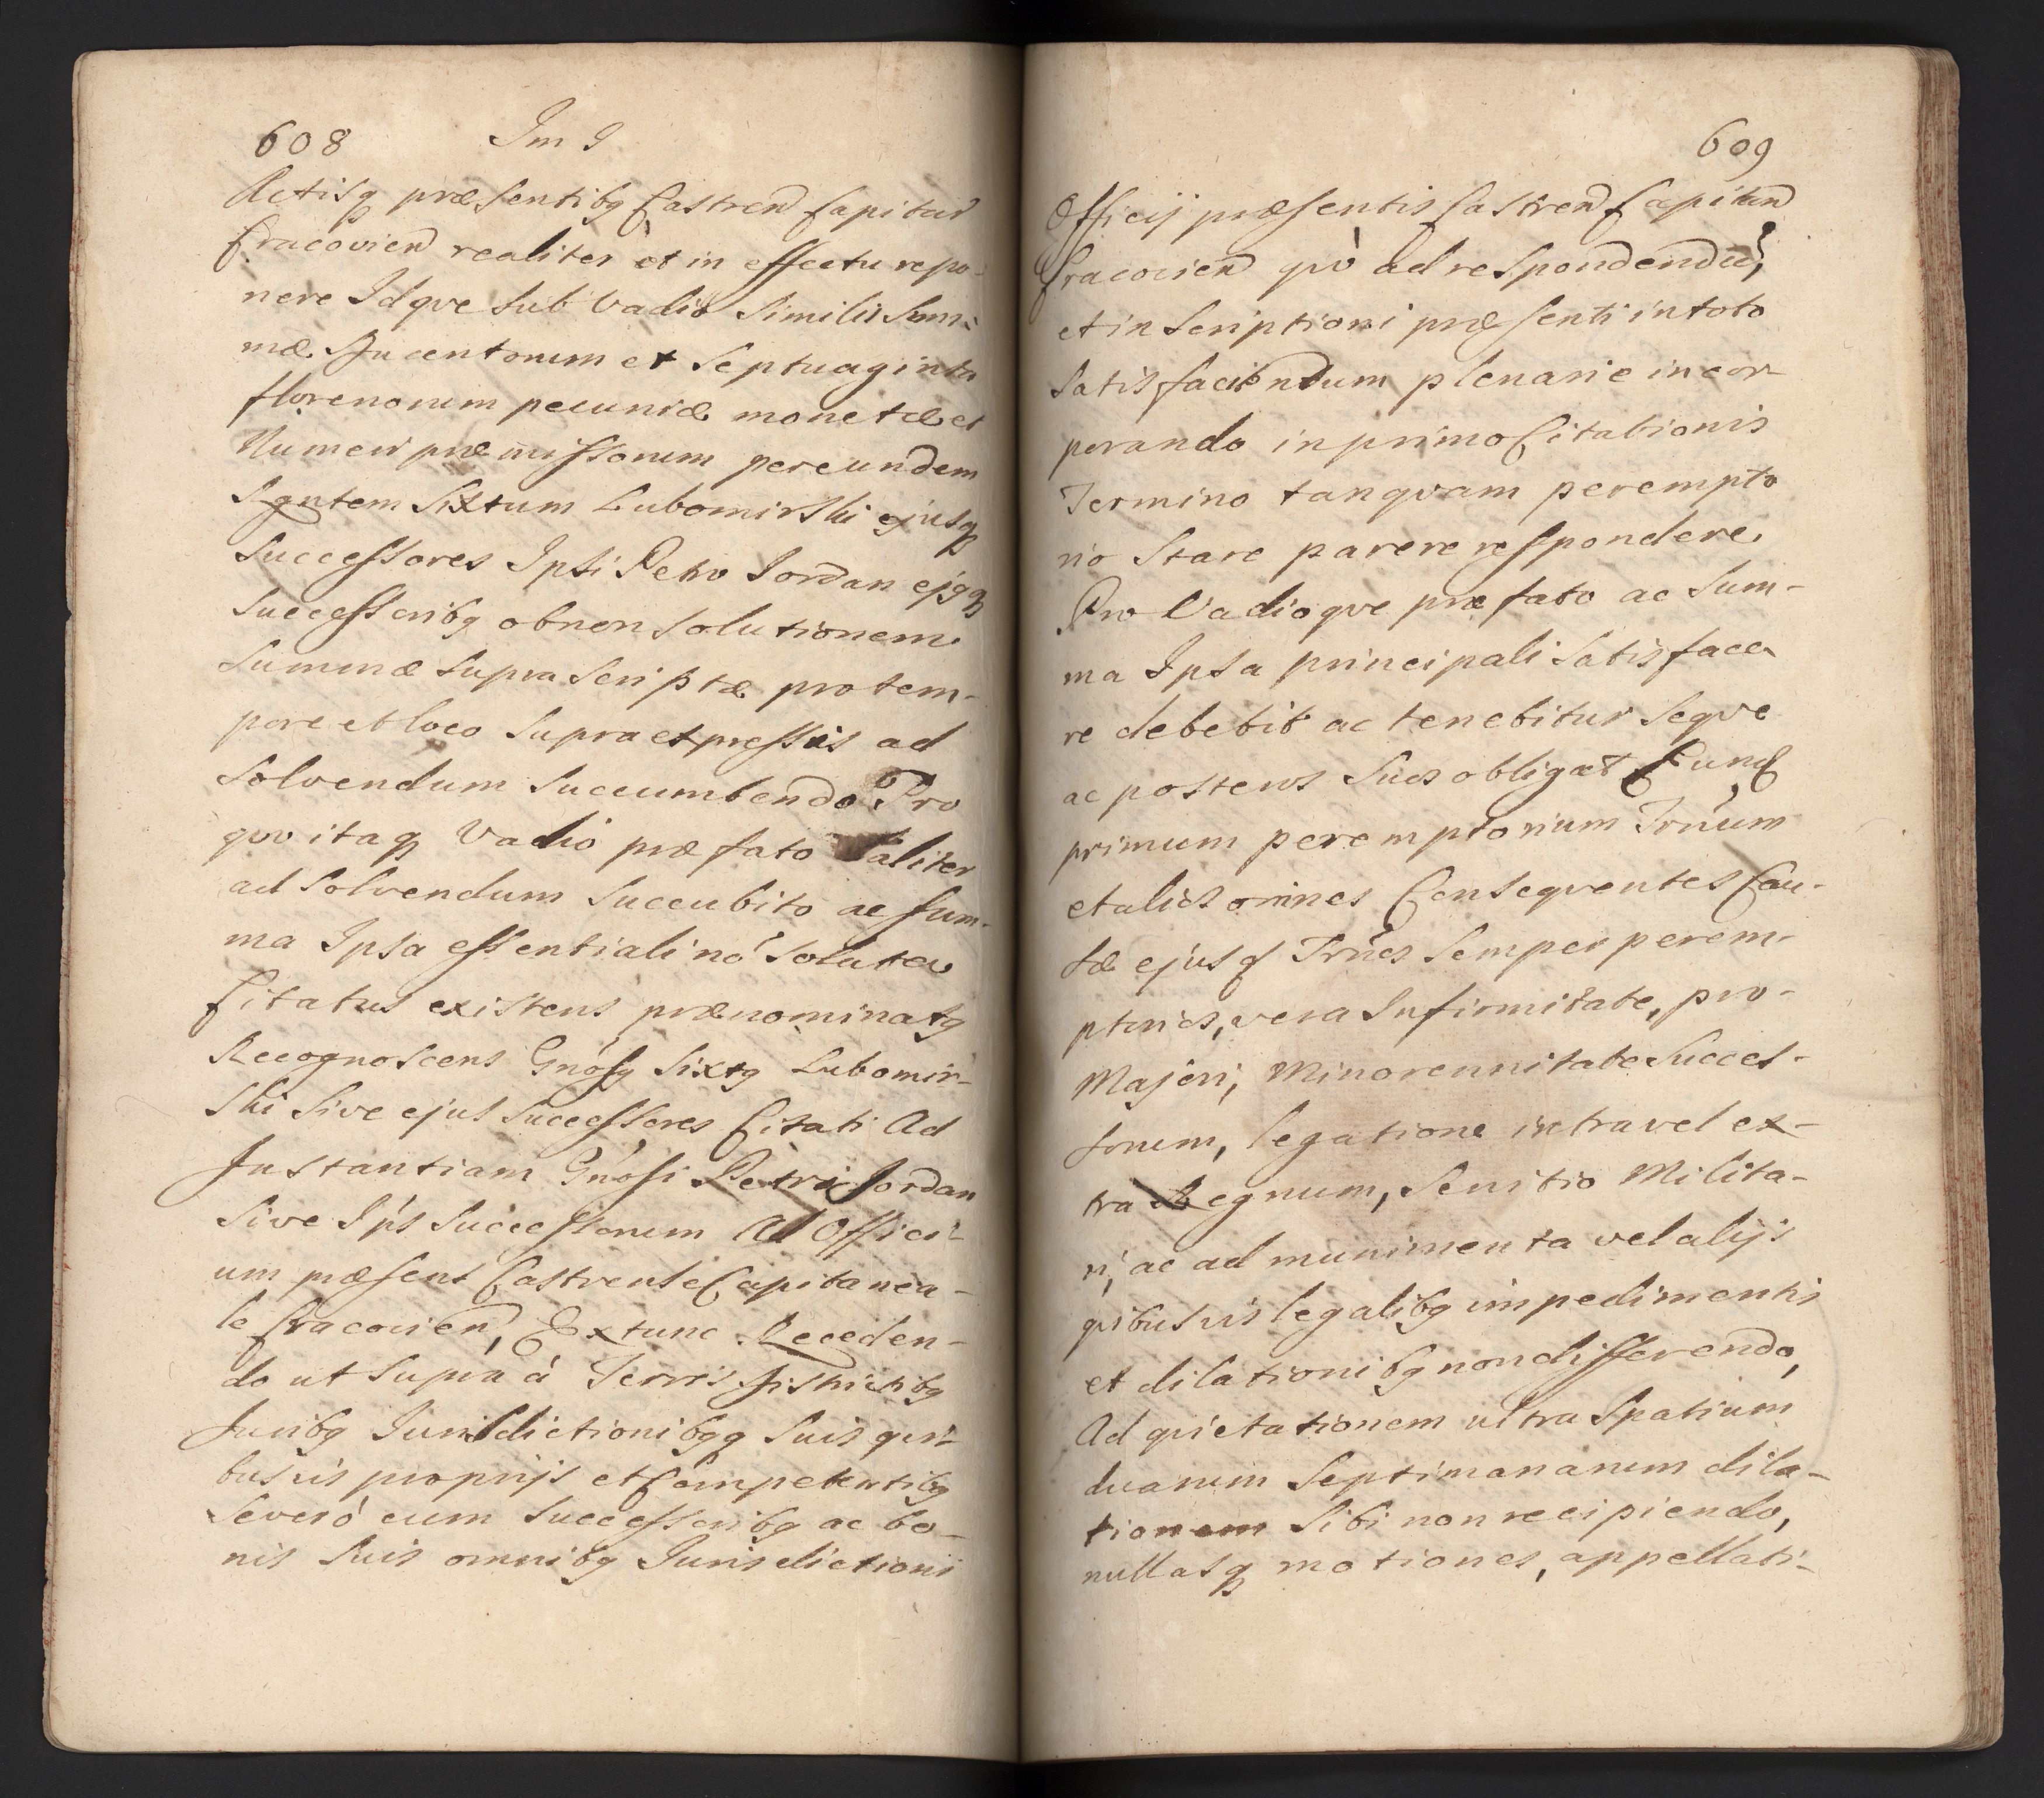 608 Im 9
Actisq præsentibg Castren Capitan
Cracovien realiter et in effectu repo-
nere Idqve sub Vadio Similis Sum-
mæ Ducentorum et Septuaginta
florenorum pecuniæ monetæ et
Numeri præmissorum per eundem
Sixtum Lubomirski ejusq
Successores Ipsi Petro Jordan ejgq
Successoribg ob non Solutionem
Summæ Supra Scriptæ pro tem-
pore et loco Supra expressis ad
Solvendum Succumbendo Pro
qvo itaq Vadio præfato taliter
ad Solvendum Succubito ac Sum-
ma Ipsa essentiali nó Soluta
Citatus existens prænominatg
Recognoscens Gnósg Sixtg Lubomir-
ski Sive ejus Successores Citati Ad
Instantiam Gnósi Petri Jordan
Sive Ips Successorum Ad Offici-
um præsens Castrense Capitanea-
le Cracovien, Extunc Receden-
do ut Supra á Terris Districtibg
Juribg Jurisdictionibgq Suis qvi-
busvis proprijs et Competentibg
Severó cum Successoribg ac bo-
nis Suis omnibg Jurisdictioni
609
Officij præsentis Castren Capitan
Cracovien qvó ad respondendū,
et inscriptioni præsenti in toto
Satisfaciendum plenarie incor-
porando in primo Citationis
Termino tanqvam perempto
rio Stare parere respondere
Pro Vadioqve præfato ac Sum-
ma Ipsa principali Satisface
re debebit ac tenebitur Seqve
ac posteros Suos obligat
primum peremptorium Trnum
et alios omnes Conseqventes Cau-
sæ ejusq Trnos Semper perem-
ptorios, vera Infirmitate, pro-
Majori, Minorennitate Succes-
sorum, legatione intra vel ex-
tra Regnum, Servitio Milita-
ri, ac ad munimenta vel alijs
qvibusvis legalibg impedimentis
et dilationibg non differendo,
Ad qvietationem ultra Spatium
duarum Septimanarum dila-
tionem Sibi non recipiendo,
nullasq motiones, appellati-